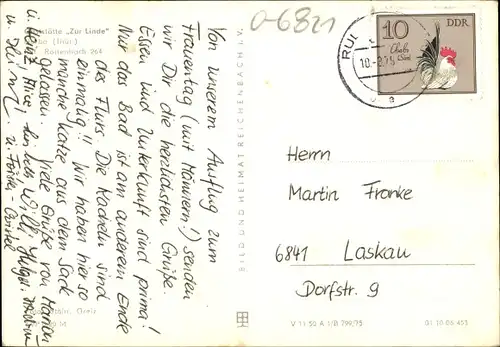 0-6821
10
DDR
RUD
10.-
Gaststätte "Zur Linde"
Rottenbach 264
Von unserem Ausflug zum
Frauentag (mit Männern!) senden
wir Dir die herzlichsten Grüße.
Essen und Unterkunft sind prima!
Nur das Bad ist am anderen Ende
des Flurs. Die Kacheln sind
einmalig!! Wir haben hier so
manche Katze aus dem Sack
gelassen. Viele Grüße von Marion
u. Heinz, Alice,
BILD UND HEIMAT REICHENBACH I. V.
Herrn
Martin Franke
6841 Laskau
Dorfstr. 9
V 11 50 A 1/B 799/75
01 10 06 453